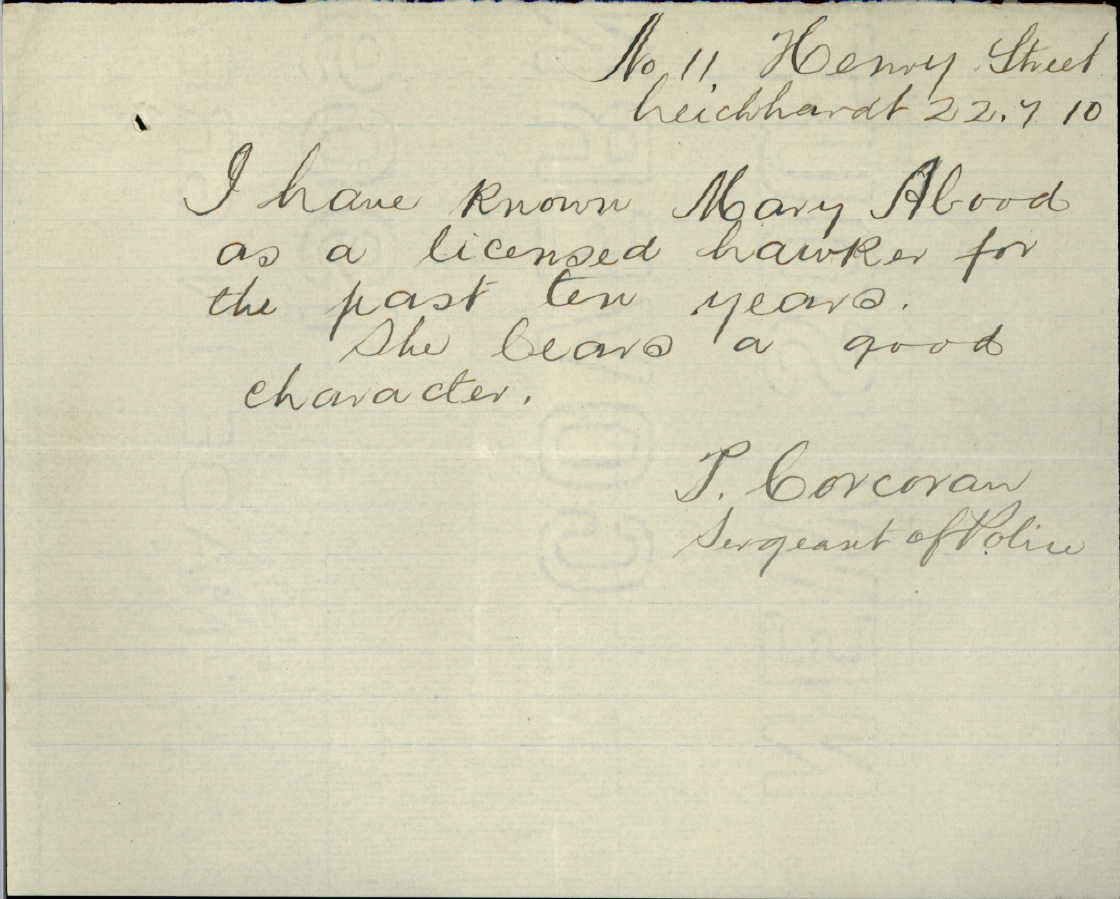 No 11 Henry Street
Leichhardt 22.7 10
I have known Mary Abood
as a licensed hawker for
the past ten years.
She bears a good
character.
P. Corcoran
Sergeant of Police